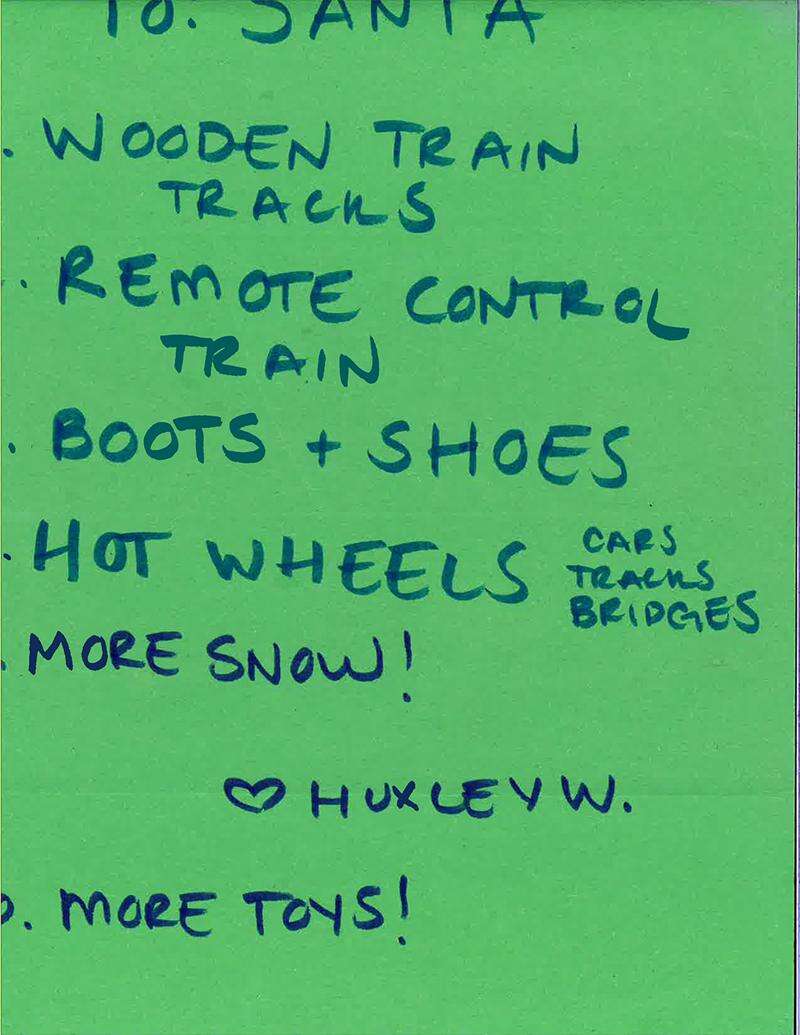 TO: SANTA
. WOODEN TRAIN
TRACKS
. REMOTE CONTROL
TRAIN
. BOOTS + SHOES
. HOT WHEELS CARS
TRACKS
BRIDGES
. MORE SNOW!
♡ HUXLEY W.
. MORE TOYS!